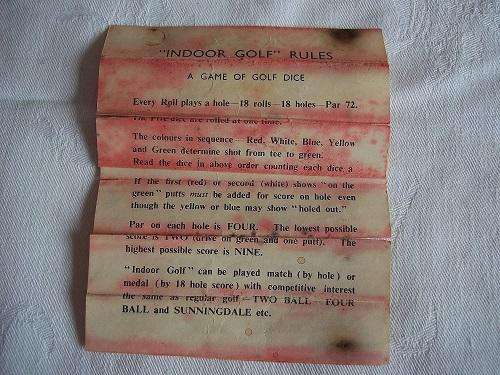 "INDOOR GOLF" RULES
A GAME OF GOLF DICE
Every Roll plays a hole—18 rolls—18 holes—Par 72.
The Five dice are rolled at one time.
The colours in sequence—Red, White, Blue, Yellow
and Green determine shot from tee to green.
Read the dice in above order counting each dice a
If the first (red) or second (white) shows "on the
green" putts must be added for score on hole even
though the yellow or blue may show "holed out."
Par on each hole is FOUR. The lowest possible
score is TWO (drive on green and one putt). The
highest possible score is NINE.
"Indoor Golf" can be played match (by hole) or
medal (by 18 hole score) with competitive interest
the same as regular golf—TWO BALL—FOUR
BALL and SUNNINGDALE etc.